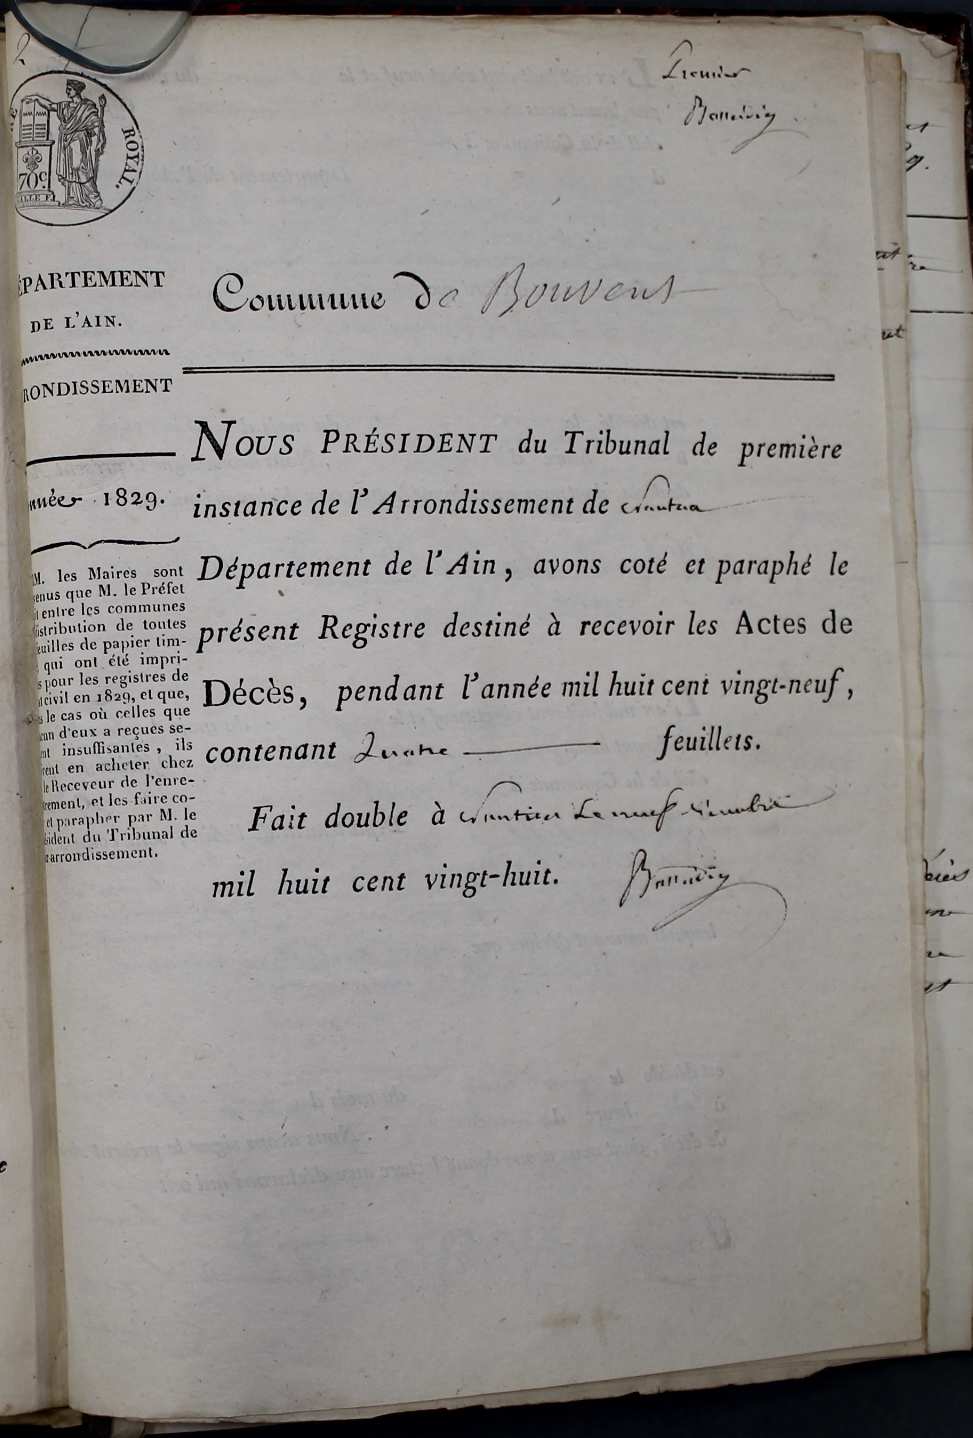 2
ROYAL.
70c
Premier
ÉPARTEMENT
DE L'AIN.
RONDISSEMENT
nnée 1829.
M. les Maires sont
enus que M. le Préfet
it entre les communes
istribution de toutes
euilles de papier tim-
qui ont été impri-
s pour les registres de
civil en 1829, et que,
s le cas où celles que
cun d'eux a reçues se-
nt insuffisantes, ils
ront en acheter chez
le Receveur de l'enre-
trement, et les faire co-
et parapher par M. le
sident du Tribunal de
arrondissement.
Commune de Bouvent
NOUS PRÉSIDENT du Tribunal de première
instance de l'Arrondissement de Nantua
Département de l'Ain, avons coté et paraphé le
présent Registre destiné à recevoir les Actes de
Décès, pendant l'année mil huit cent vingt-neuf,
contenant Quatre feuillets.
Fait double à Nantua le neuf Décembre
mil huit cent vingt-huit.